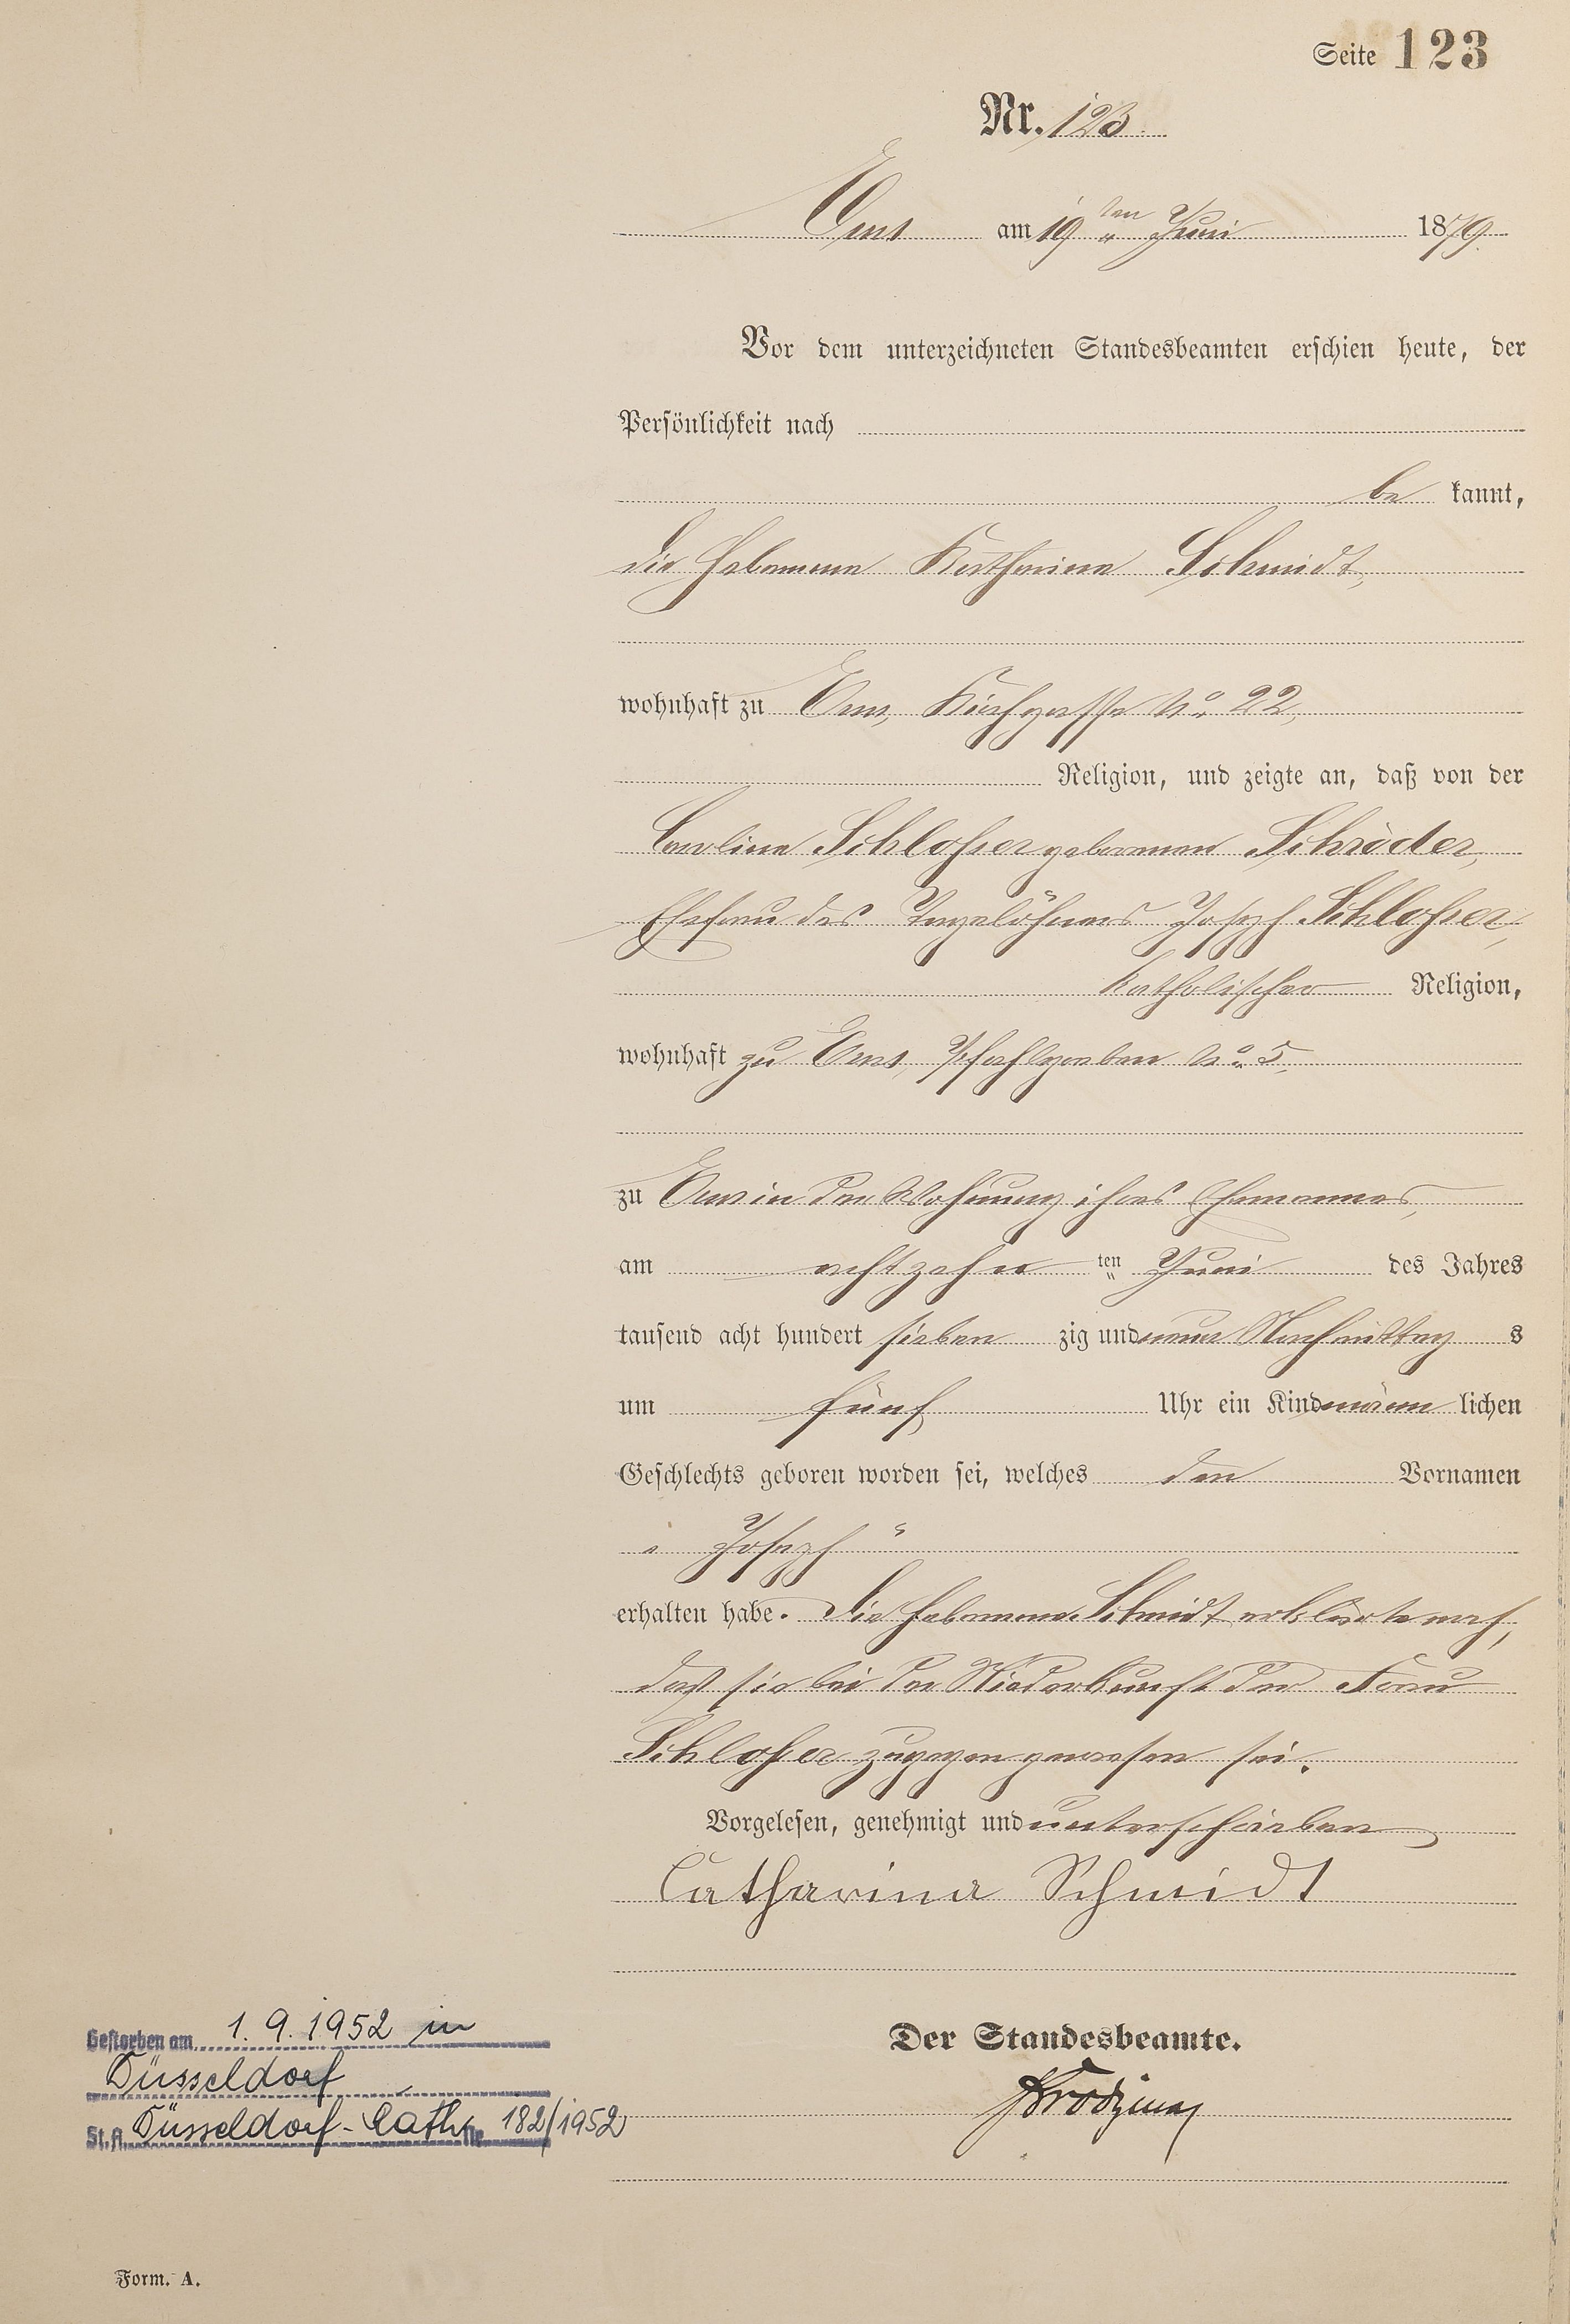 Seite 123
Nr. 123.
Ems am 19ten Juni 1879.
Vor dem unterzeichneten Standesbeamten erschien heute, der
Persönlichkeit nach
be kannt,
die Hebamme Katharina Schmidt,
wohnhaft zu Ems, Kirchgasse No. 22,
Religion, und zeigte an, daß von der
Caroline Schloßer geborenen Schröder,
Ehefrau des Tagelöhners Joseph Schloßer,
katholischer Religion,
wohnhaft zu Ems, Pfahlgraben No. 5,
zu Ems in der Wohnung ihres Ehemannes,
am achtzehn ten Juni des Jahres
tausend acht hundert sieben zig und neun Nachmittag s
um fünf Uhr ein Kind männ lichen
Geschlechts geboren worden sei, welches den Vornamen
„Joseph“
erhalten habe. Die Hebamme Schmidt erklärte noch,
daß sie bei der Niederkunft der Frau
Schloßer zugegen gewesen sei.
Vorgelesen, genehmigt und unterschrieben
Catharina Schmidt
Der Standesbeamte.
Gestorben am 1.9.1952 in
Düsseldorf
St.A. Düsseldorf-Rath Nr. 182/1952
Form. A.